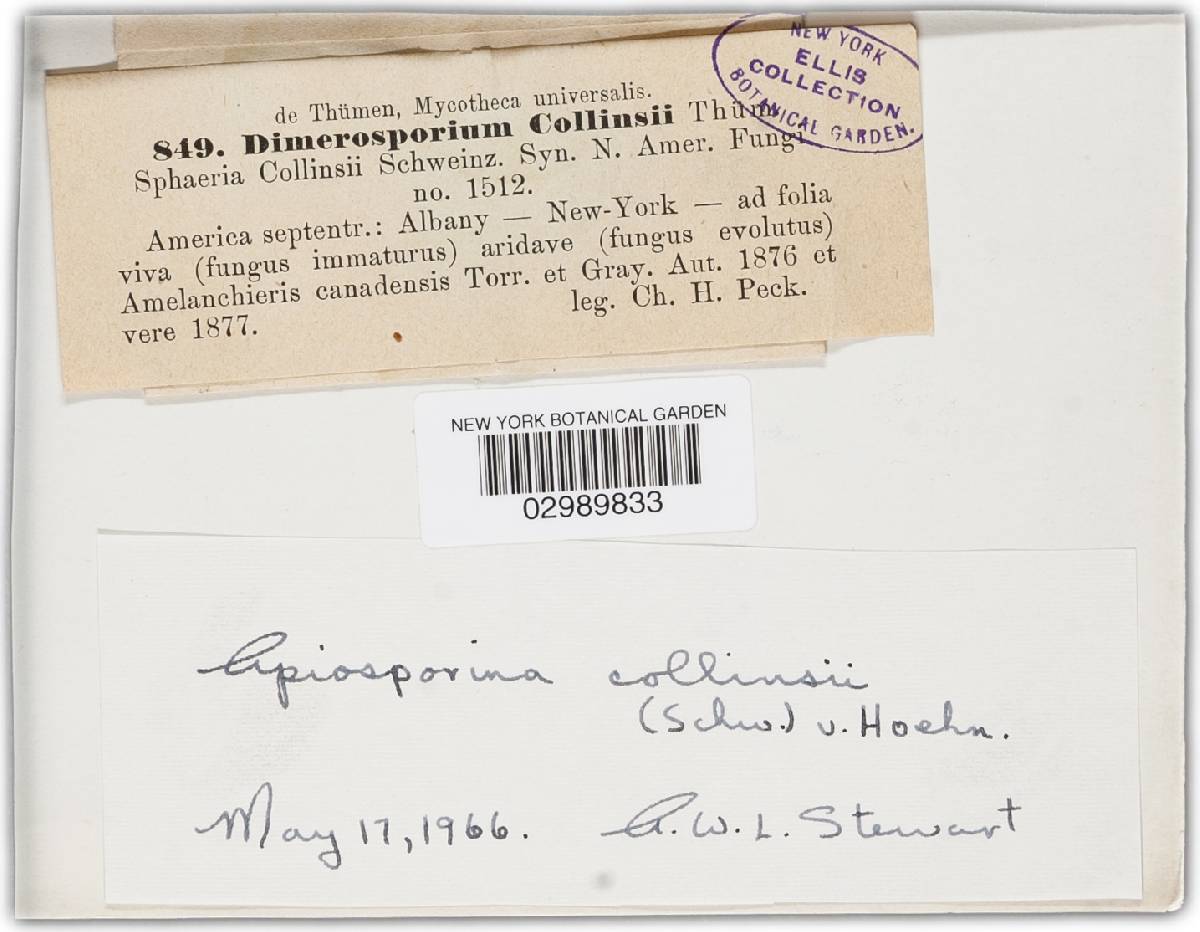 NEW YORK
ELLIS
COLLECTION
BOTANICAL GARDEN.
de Thümen, Mycotheca universalis.
849. Dimerosporium Collinsii Thüm.
Sphaeria Collinsii Schweinz. Syn. N. Amer. Fungi
no. 1512.
America septentr.: Albany — New-York — ad folia
viva (fungus immaturus) aridave (fungus evolutus)
Amelanchieris canadensis Torr. et Gray. Aut. 1876 et
vere 1877. leg. Ch. H. Peck.
NEW YORK BOTANICAL GARDEN
02989833
Apiosporina collinsii
(Schw.) v. Hoehn.
May 17, 1966. A. W. L. Stewart